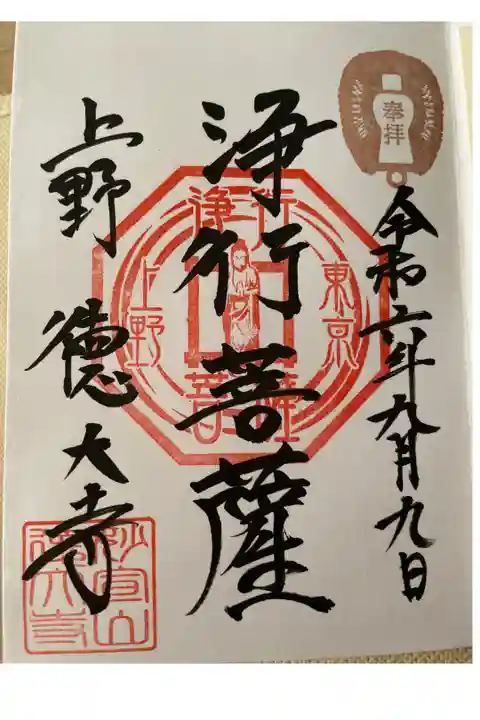 奉拝
令和六年九月九日
浄行菩薩
浄行
東京
上野
菩薩
上野 徳大寺
妙宣山
徳大寺